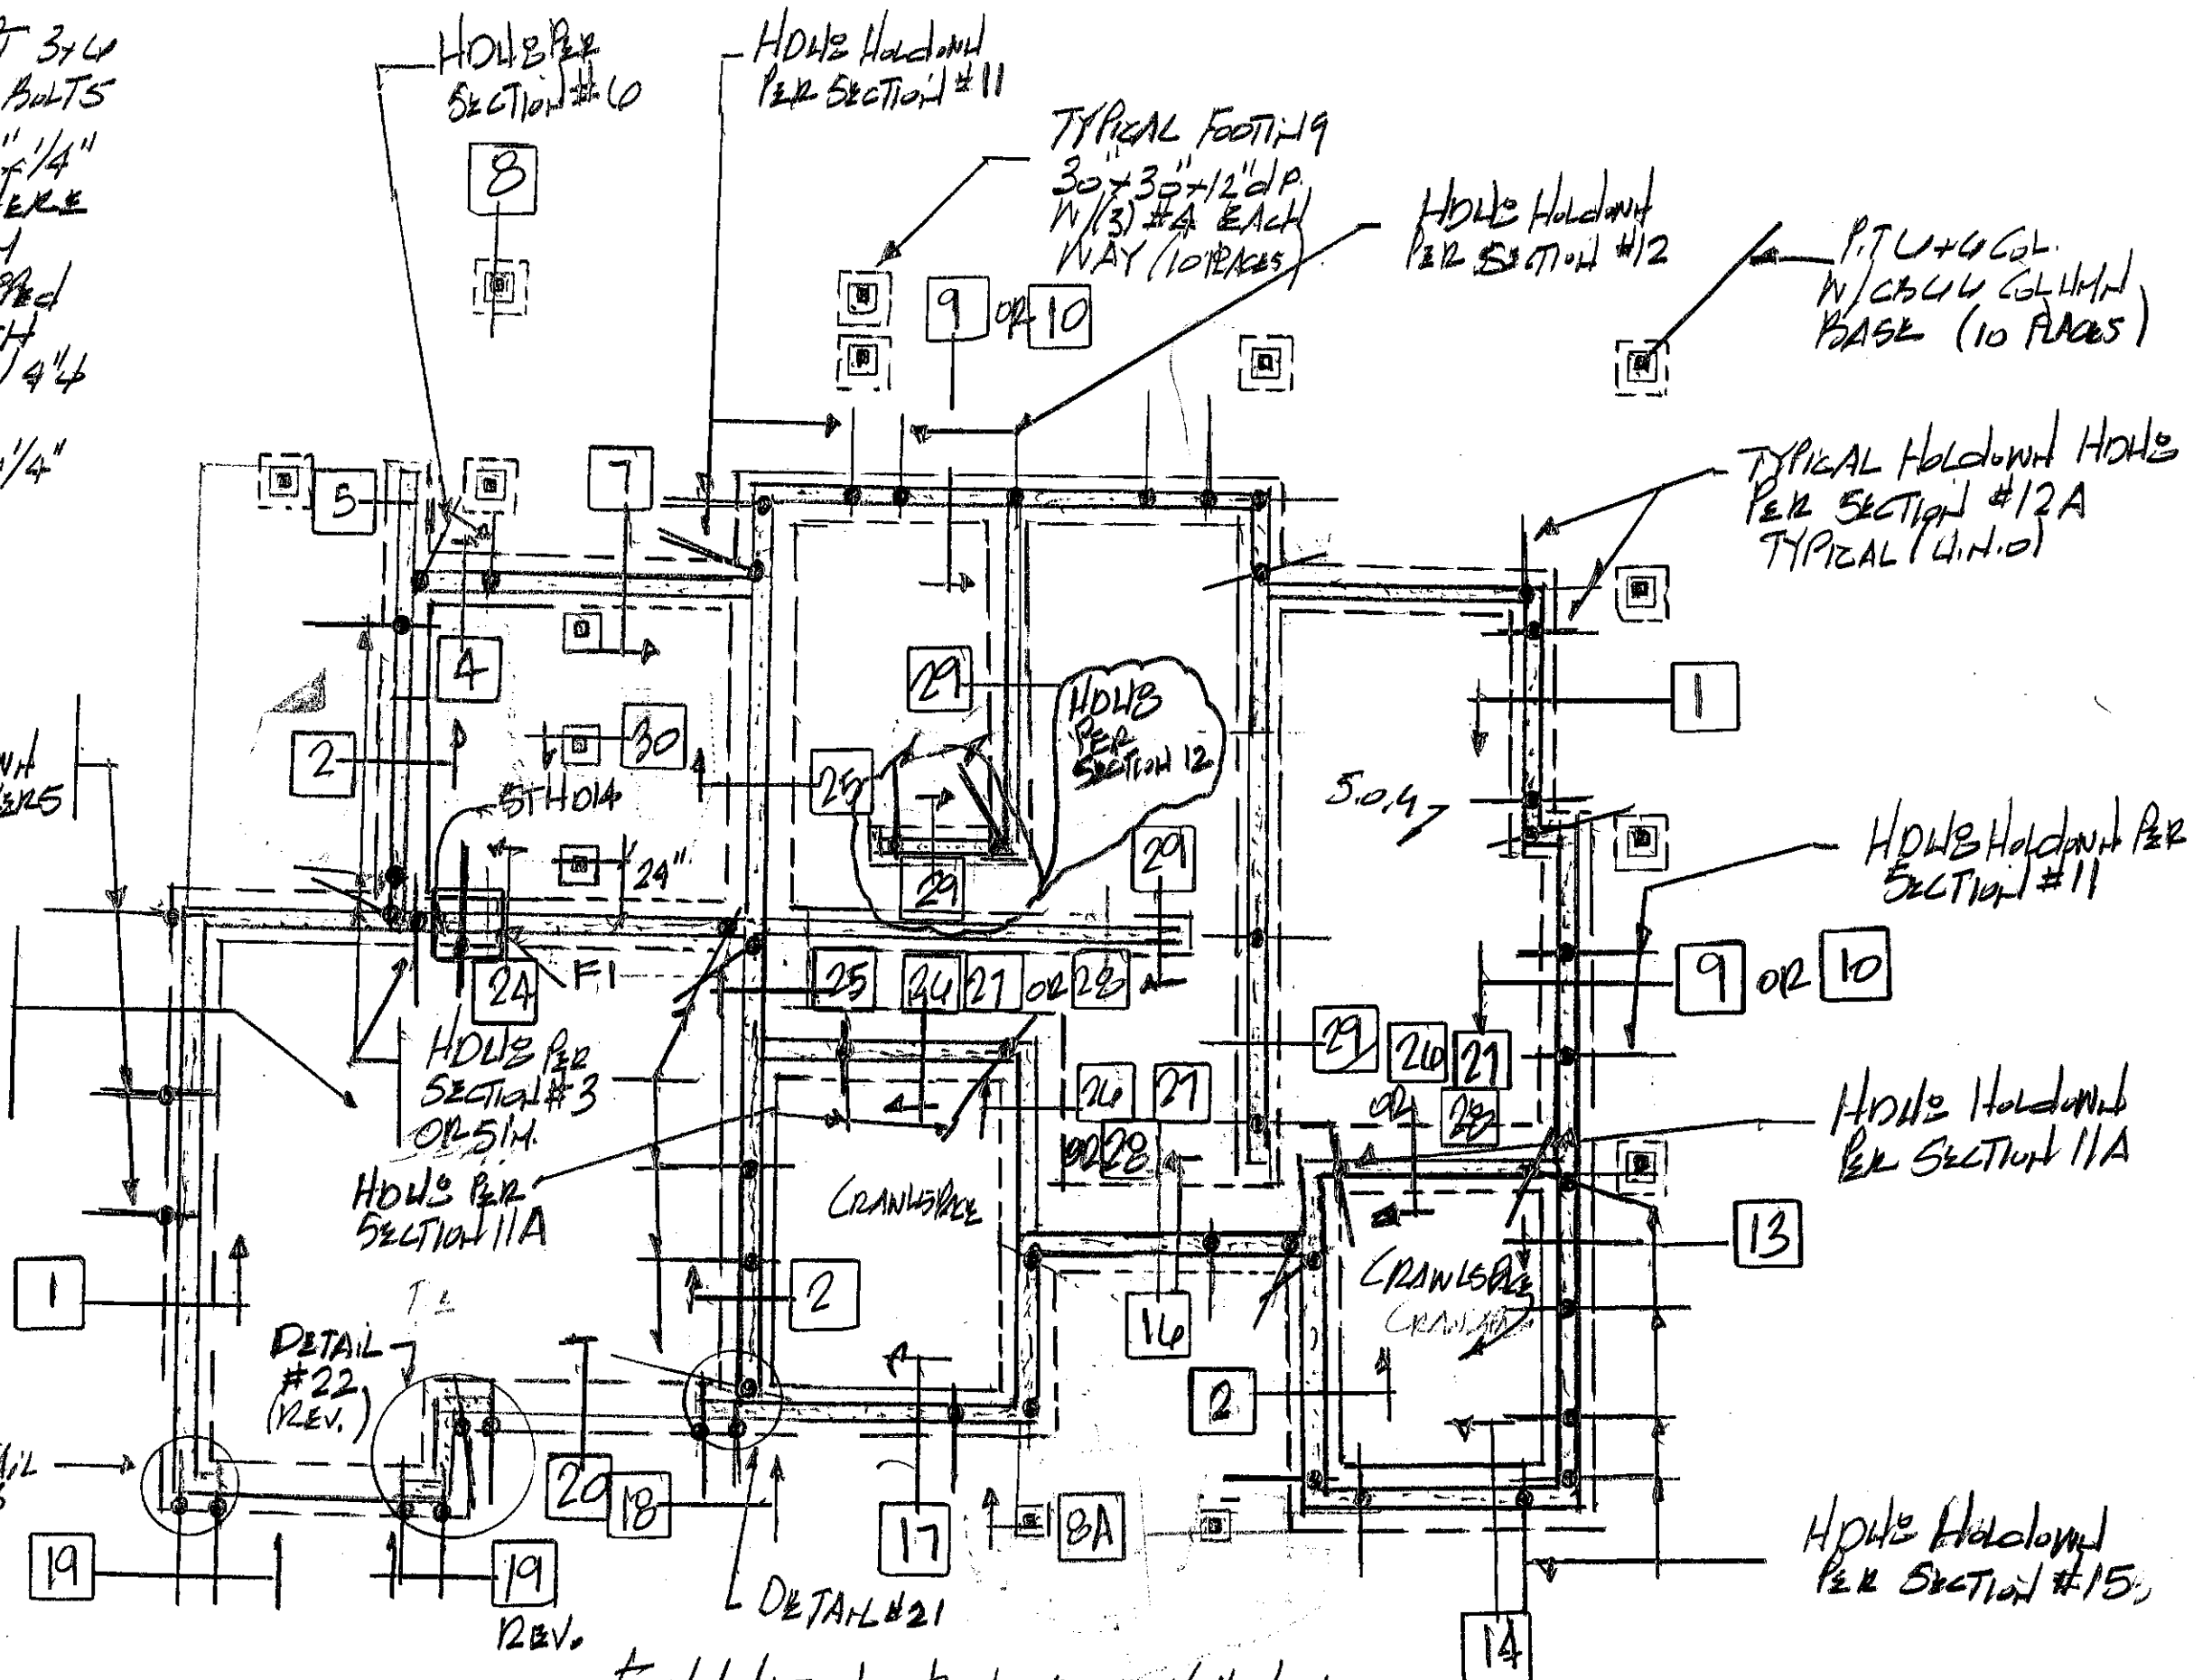 3x6
BOLTS
1/4"
HDU8 PER
SECTION #6
8
HDU8 HOLDOWN
PER SECTION #11
TYPICAL FOOTING
30"x30"x12" DP.
W/(3) #4 EACH
WAY (10 PLACES)
HDU8 HOLDOWN
PER SECTION #12
P.T. 6x6 COL.
W/CB66 COLUMN
BASE (10 PLACES)
9 OR 10
1/4"
5
7
TYPICAL HOLDOWN HDU8
PER SECTION #12A
TYPICAL (U.N.O)
4
29
HDU8
PER
SECTION 12
1
2
30
25
STHD14
S.O.G
24"
29
29
HDU8 HOLDOWN PER
SECTION #11
24
F1
25
26 27 OR 28
9 OR 10
HDU8 PER
SECTION #3
OR SIM.
29
26 27
OR 28
26 27
OR 28
HDU8 HOLDOWN
PER SECTION 11A
HDU8 PER
SECTION 11A
CRAWLSPACE
13
1
2
CRAWLSPACE
16
DETAIL
#22
(REV.)
2
20
18
17
8A
19
19
REV.
DETAIL #21
HDU8 HOLDOWN
PER SECTION #15
14